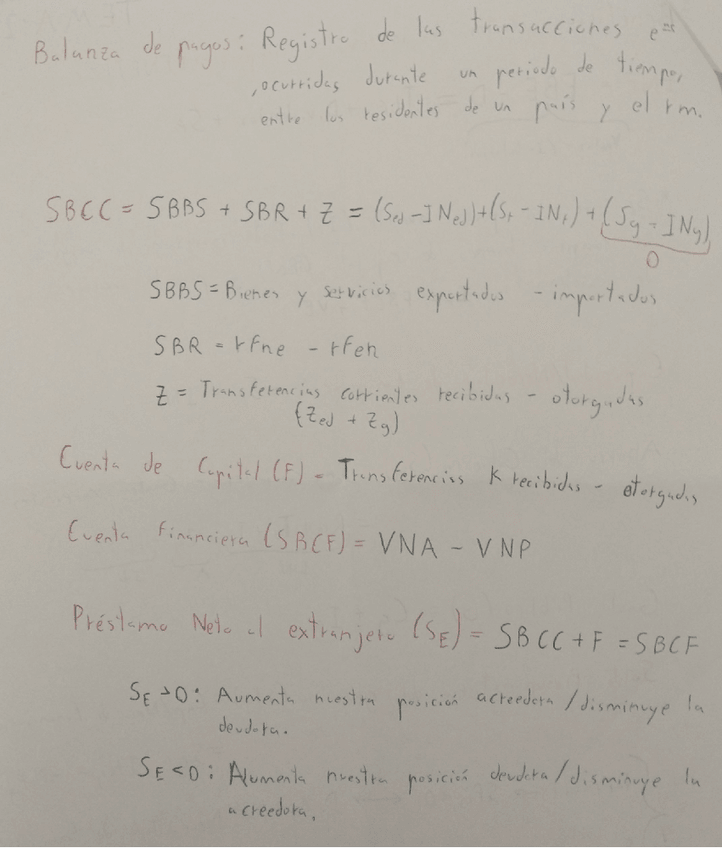 Balanza de pagos: Registro de las transacciones e^cas
, ocurridas durante un periodo de tiempo,
entre los residentes de un país y el rm.
SBCC = SBBS + SBR + Z = (Sed - INed) + (St - INt) + (Sg - INg)
0
SBBS = Bienes y servicios exportados - importados
SBR = rfne - rfen
Z = Transferencias corrientes recibidas - otorgadas
(Zed + Zg)
Cuenta de Capital (F) = Transferencias K recibidas - otorgadas
Cuenta Financiera (SBCF) = VNA - VNP
Préstamo Neto al extranjero (SE) = SBCC + F = SBCF
SE > 0: Aumenta nuestra posición acreedora / disminuye la
deudora.
SE < 0: Aumenta nuestra posición deudora / disminuye la
acreedora.